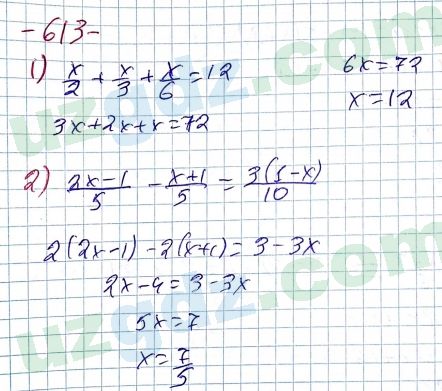 -613-
1) x/2 + x/3 + x/6 = 12
3x+2x+x=72
6x=72
x=12
2) (2x-1)/5 - (x+1)/5 = 3(1-x)/10
2(2x-1)-2(x+1)=3-3x
2x-4=3-3x
5x=7
x=7/5
uzgdz.com
uzgdz.com
uzgdz.com